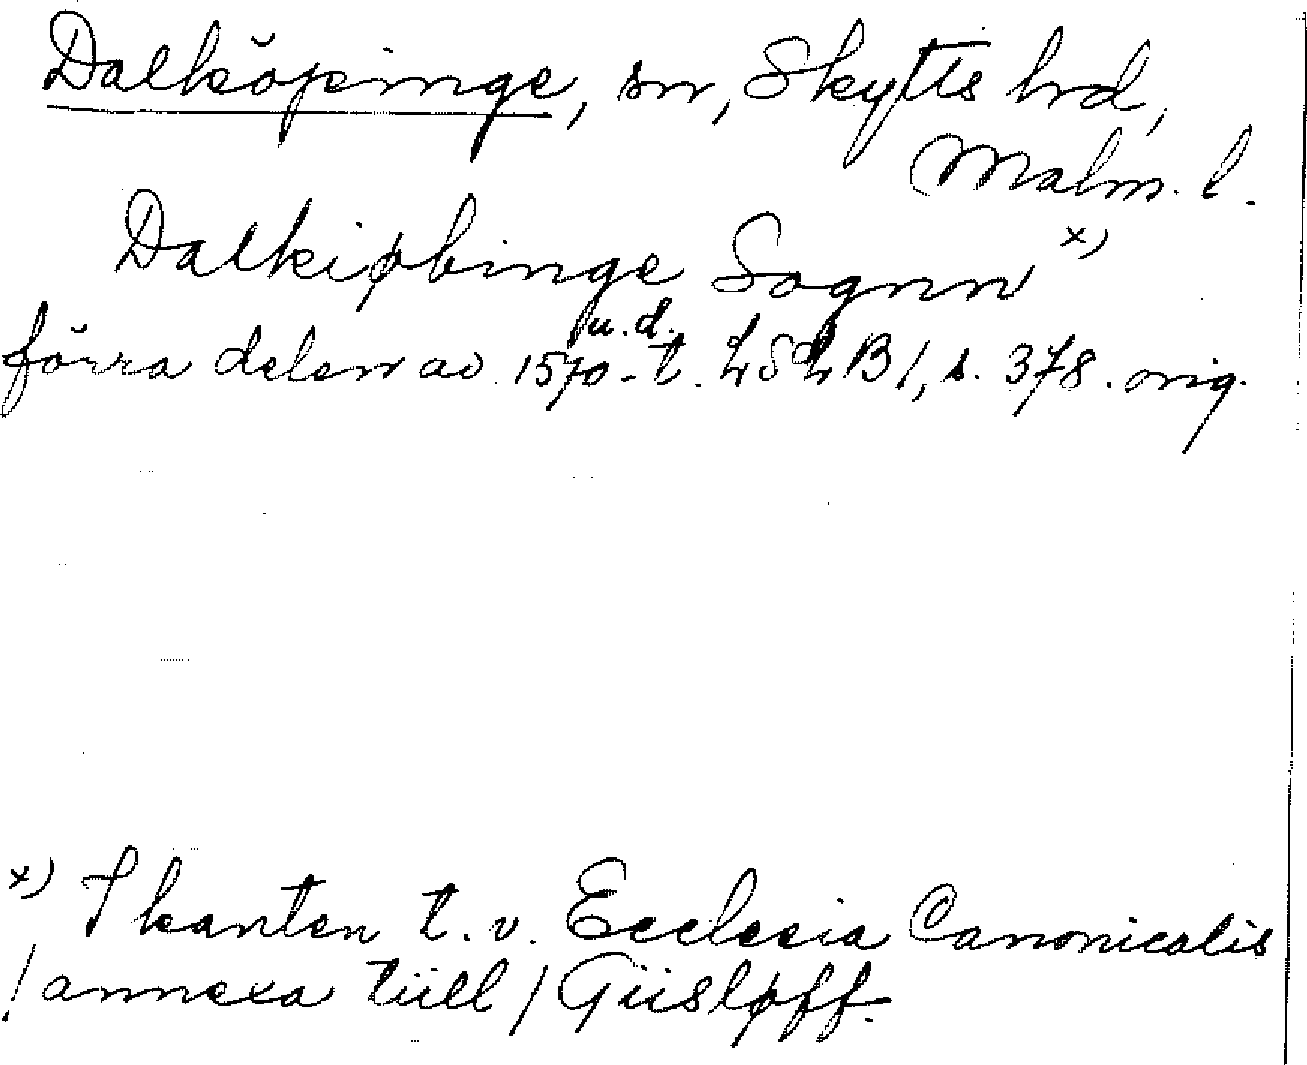 Dalköpinge, sn, Skytts hrd,
Malm. l.
Dalkiøbinge Sognn x)
u. d.
förra delen av 1570-t. LSLB 1, s. 378. orig.
x) I kanten t. v. Ecclesia Canonicalis
/ annexa tiill / Giisløff.